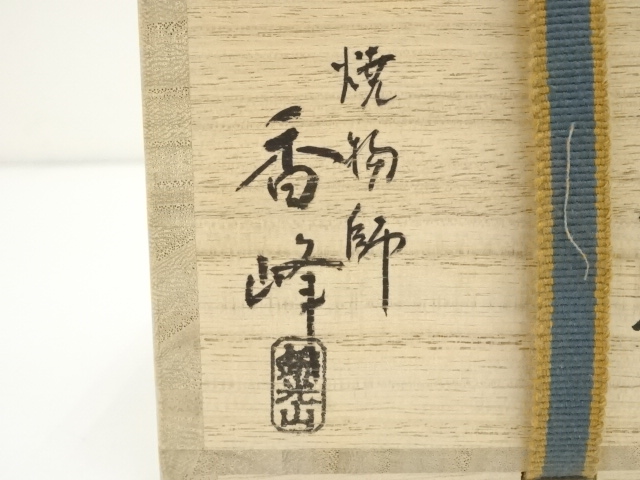 焼物師
香峰